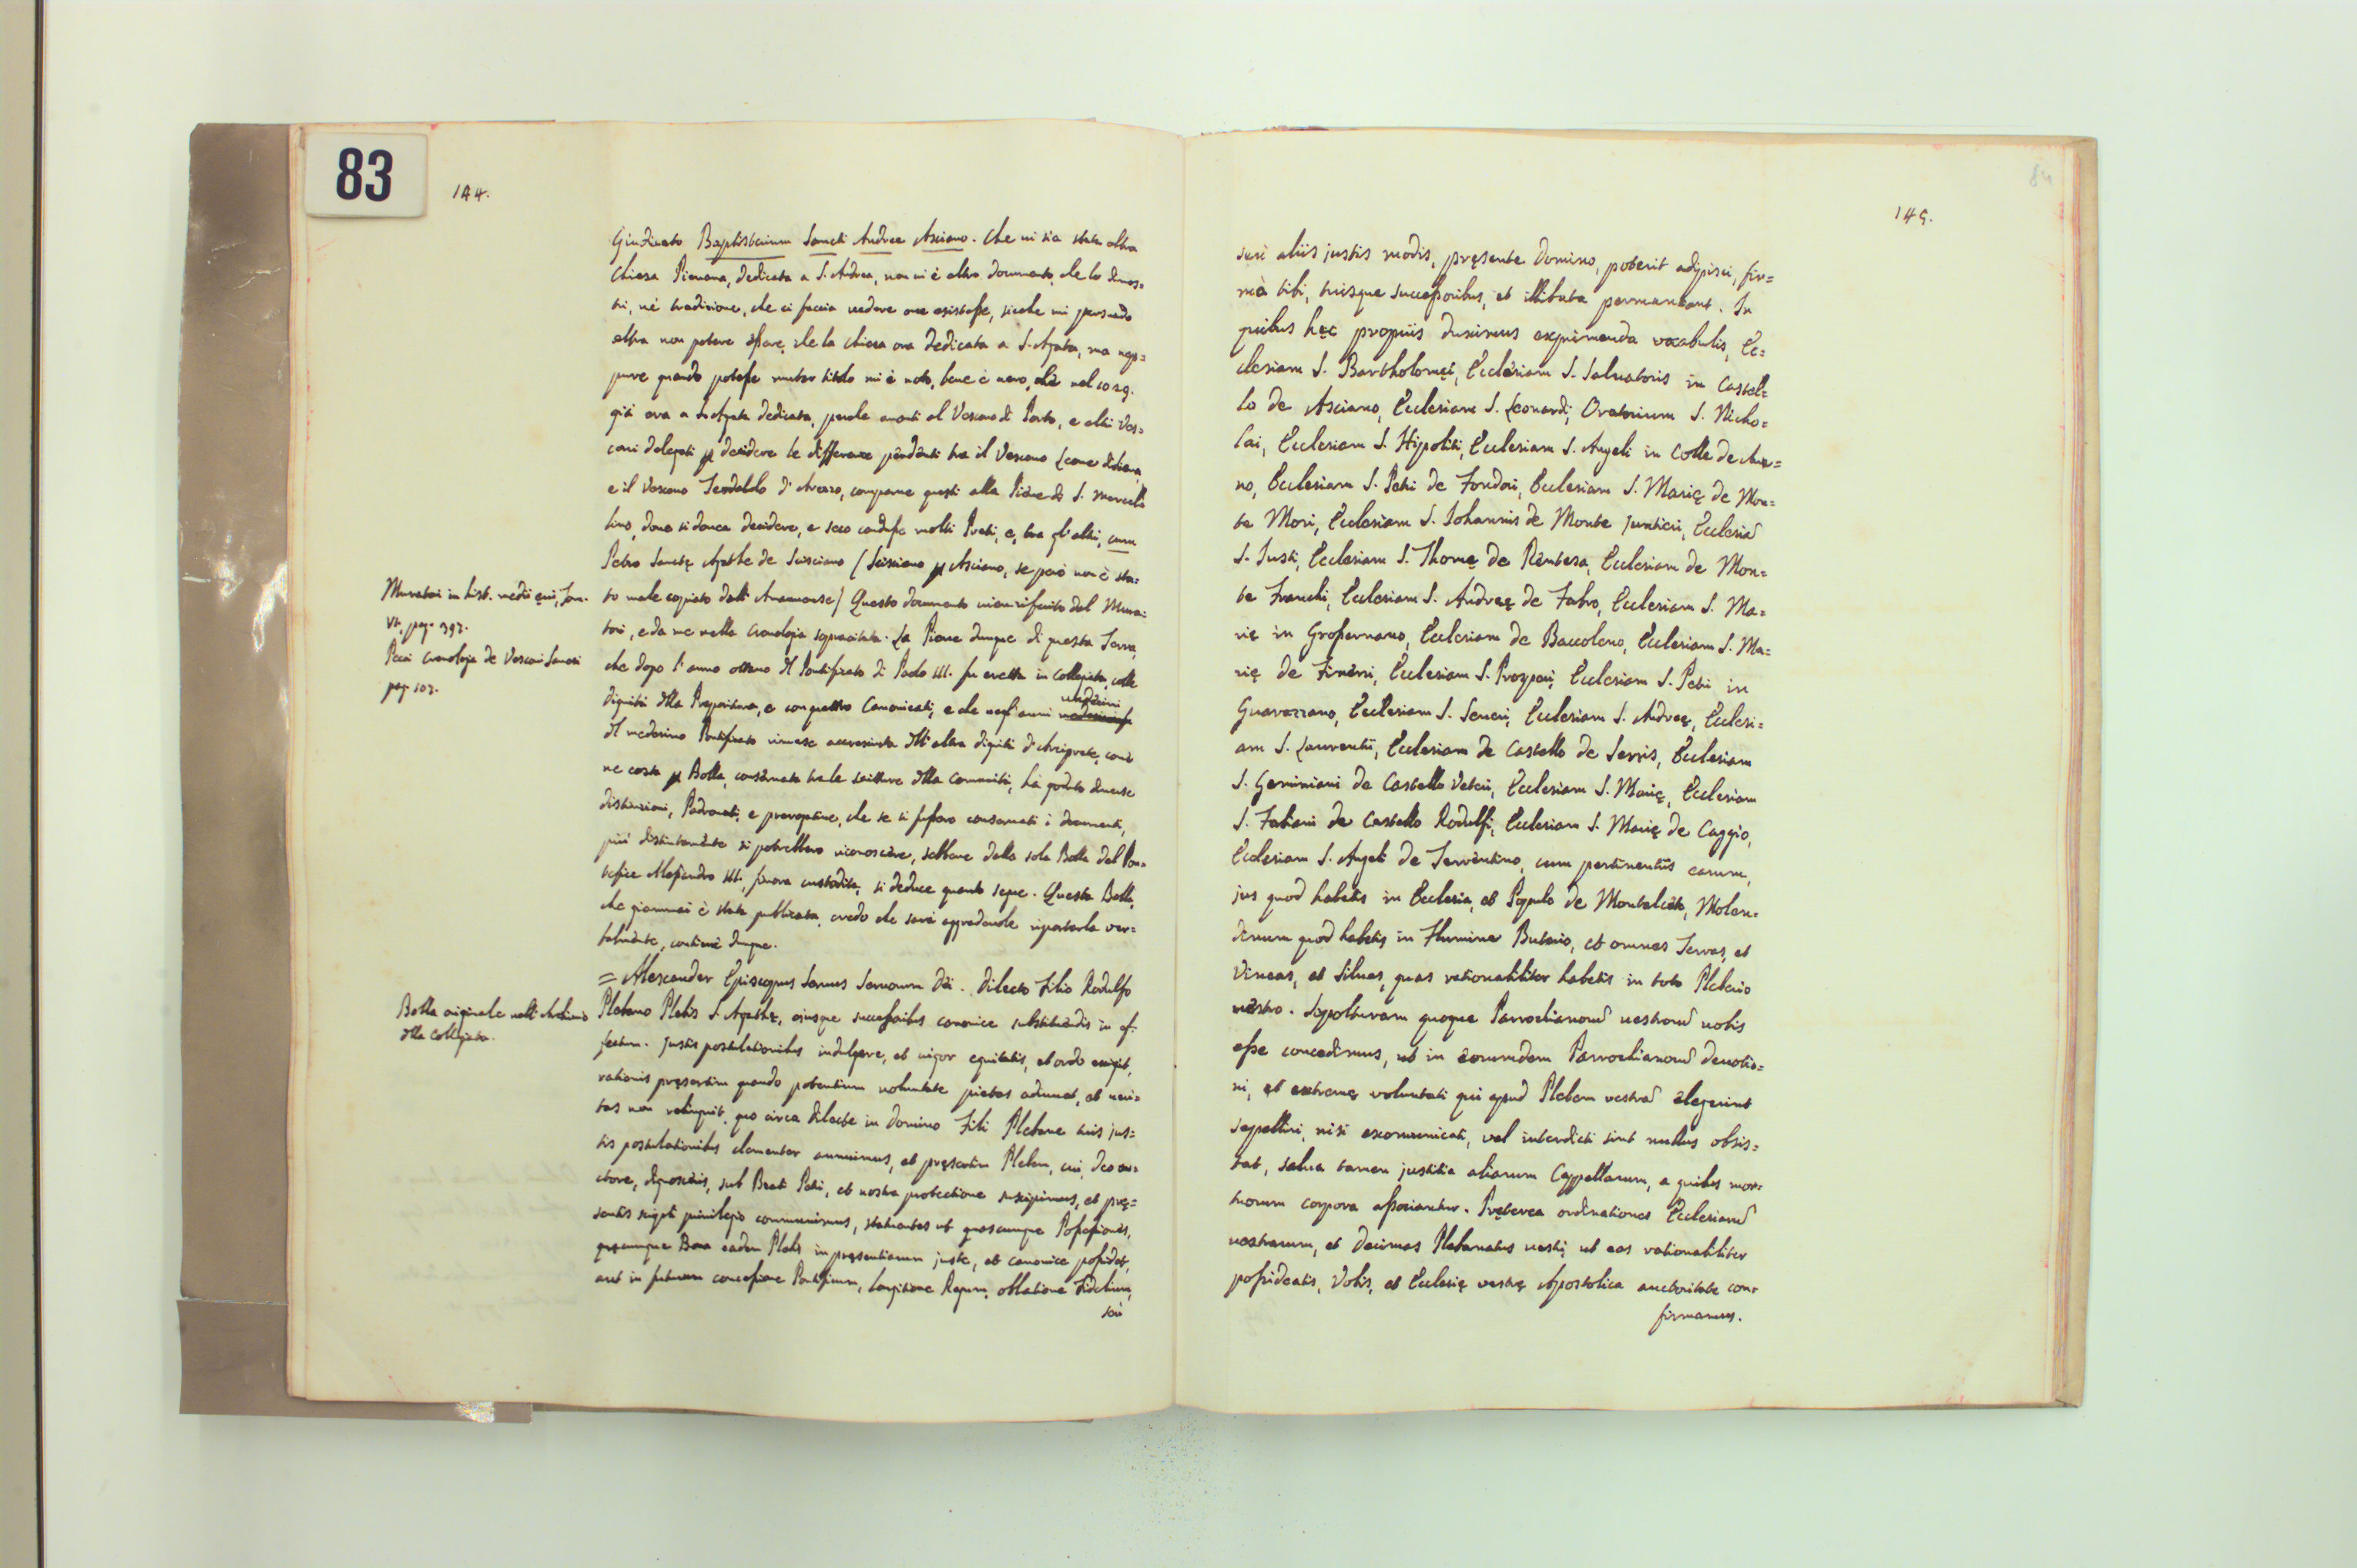 83
144.
Giudicato Baptisterium Sancti Andree Asciano. Che vi sia stata altra
Chiesa Pievana, dedicata a S. Andrea, non vi è altro documento, che lo dimos=
tri, nè tradizione, che ci faccia vedere ove esistesse, sicche mi persuado
altra non potere essere, che la Chiesa ora dedicata a S. Agata, ma nep=
pure quando potesse mutar titolo mi è noto, bene è vero, che nel 1029.
già era a S. Agata dedicata, perche avanti al Vescovo di Porto, e altri Ves=
covi delegati p decidere le differenze pendenti tra il Vescovo Leone di Siena,
e il Vescovo Teodaldo d'Arezzo, comparve questi alla Pieve di S. Marcel
lino, dove si dovea decidere, e seco condusse molti Preti, e, tra gl'altri, cum
Petro Sanctę Agathe de Scisciano / Scisciano p Asciano, se però non è sta=
to male copiato dall' Amanuense / Questo documento viene riferito dal Mura=
tori, e da me nella Cronologia sopracitata. La Pieve dunque di questa Terra,
che dopo l'anno ottavo dl Pontificato di Paolo III. fu eretta in Collegiata, colle
dignità dlla Prepositura, e con quattro Canonicati, e che negl'anni
dl medesimo Pontificato rimase accresciuta dll'altra dignità d'Arciprete, come
ne costa p Bolla, conservata tra le scritture dlla Communità, hà goduto diverse
distinzioni, Padronati, e prerogative, che se si fussero conservati i documenti,
più distintamente si potrebbero riconoscere, sebbene dalla sola Bolla del Pon=
tefice Alessandro III, finora custodita, si deduce quanto segue. Questa Bolla,
che giammai è stata publicata, credo che sarà aggradevole riportarla ver=
balmente, contiene dunque.
= Alexander Episcopus Servus Servorum Dei. Dilecto Filio Rodulfo
Plebano Plebis S. Agathę, ejusque successoribus canonice substituendis in ef=
fectum. Justis postulationibus indulgere, et vigor equitatis, et ordo exigit,
rationis pręsertim quando potentium voluntate pietas adiuvat, et veri=
tas non relinquit, quo circa dilecte in Domino Fili Plebane tuis jus=
tis postulationibus clementer annuimus, et pręsertim Plebem, cui, deo au=
ctore, dignosceris, sub Beati Petri, et nostra protectione suscipimus, et pre=
sentis scripti privilegio communimus, statuentes ut quascumque Possessiones,
quęcumque Bona eadem Plebs in pręsentiarum juste, et canonice possidet,
aut in futurum concessione Pontificum, largitione Regum, oblatione Fidelium,
seù
Muratori in hist. medii ęvi, Tom.
VI, pag. 393.
Pecci Cronologia de Vescovi Sanesi
pag. 107.
Bolla originale nell'Archivio
dlla Collegiata.
84
145.
seù aliis justis modis, pręsente Domino, poterit adipisci, fir=
ma tibi, tuisque successoribus, et illibata permaneant. In
quibus hęc propriis duximus exprimenda vocabulis, Ec=
clesiam S. Bartholomęi, Ecclesiam S. Salvatoris in Castel=
lo de Asciano, Ecclesiam S. Leonardi, Oratorium S. Nicho=
lai, Ecclesiam S. Hipoliti, Ecclesiam S. Angeli in Colle de
no, Ecclesiam S. Petri de Fondori, Ecclesiam S. Marię de Mon=
te Mori, Ecclesiam S. Johannis de Monte Junticri, Ecclesia
S. Justi, Ecclesiam S. Thomę de Rentesa, Ecclesiam de Mon=
te Franchi, Ecclesiam S. Andreę de Fabro, Ecclesiam S. Ma=
rię in Grossennano, Ecclesiam de Baccoleno, Ecclesiam S. Ma=
rię de Fineri, Ecclesiam S. Prosperi, Ecclesiam S. Petri in
Guarazzano, Ecclesiam S. Severi, Ecclesiam S. Andreę, Ecclesi=
am S. Laurentii, Ecclesiam de Castello de Serris, Ecclesiam
S. Geminiani de Castello Veteri, Ecclesiam S. Marię, Ecclesiam
S. Fabiani de Castello Rodulfi, Ecclesiam S. Marię de Caggio,
Ecclesiam S. Angeli de Serventino, cum pertinentiis earum,
jus quod habetis in Ecclesia, et Populo de Montalceto, Molen=
dinum quod habetis in Flumine Butario, et omnes Terras, et
Vineas, et Silvas, quas rationabiliter habetis in toto Pleberio
vestro. Sepolturam quoque Parrochianorum vestrorum vobis
esse concedimus, ut in eorumdem Parrochianorum devotio=
ni, et extremę voluntati qui apud Plebem vestram elegerint
sepelliri, nisi excomunicati, vel interdicti sint nullus obsis=
tat, salva tamen justitia aliarum Cappellarum, a quibus mor=
tuorum corpora associantur. Pręterea ordinationes Ecclesiarum
vestrarum, et Decimas Plebanatus vestri, ut eas rationabiliter
possideatis, Vobis, et Ecclesię vestrę Apostolica auctoritate con=
firmamus.